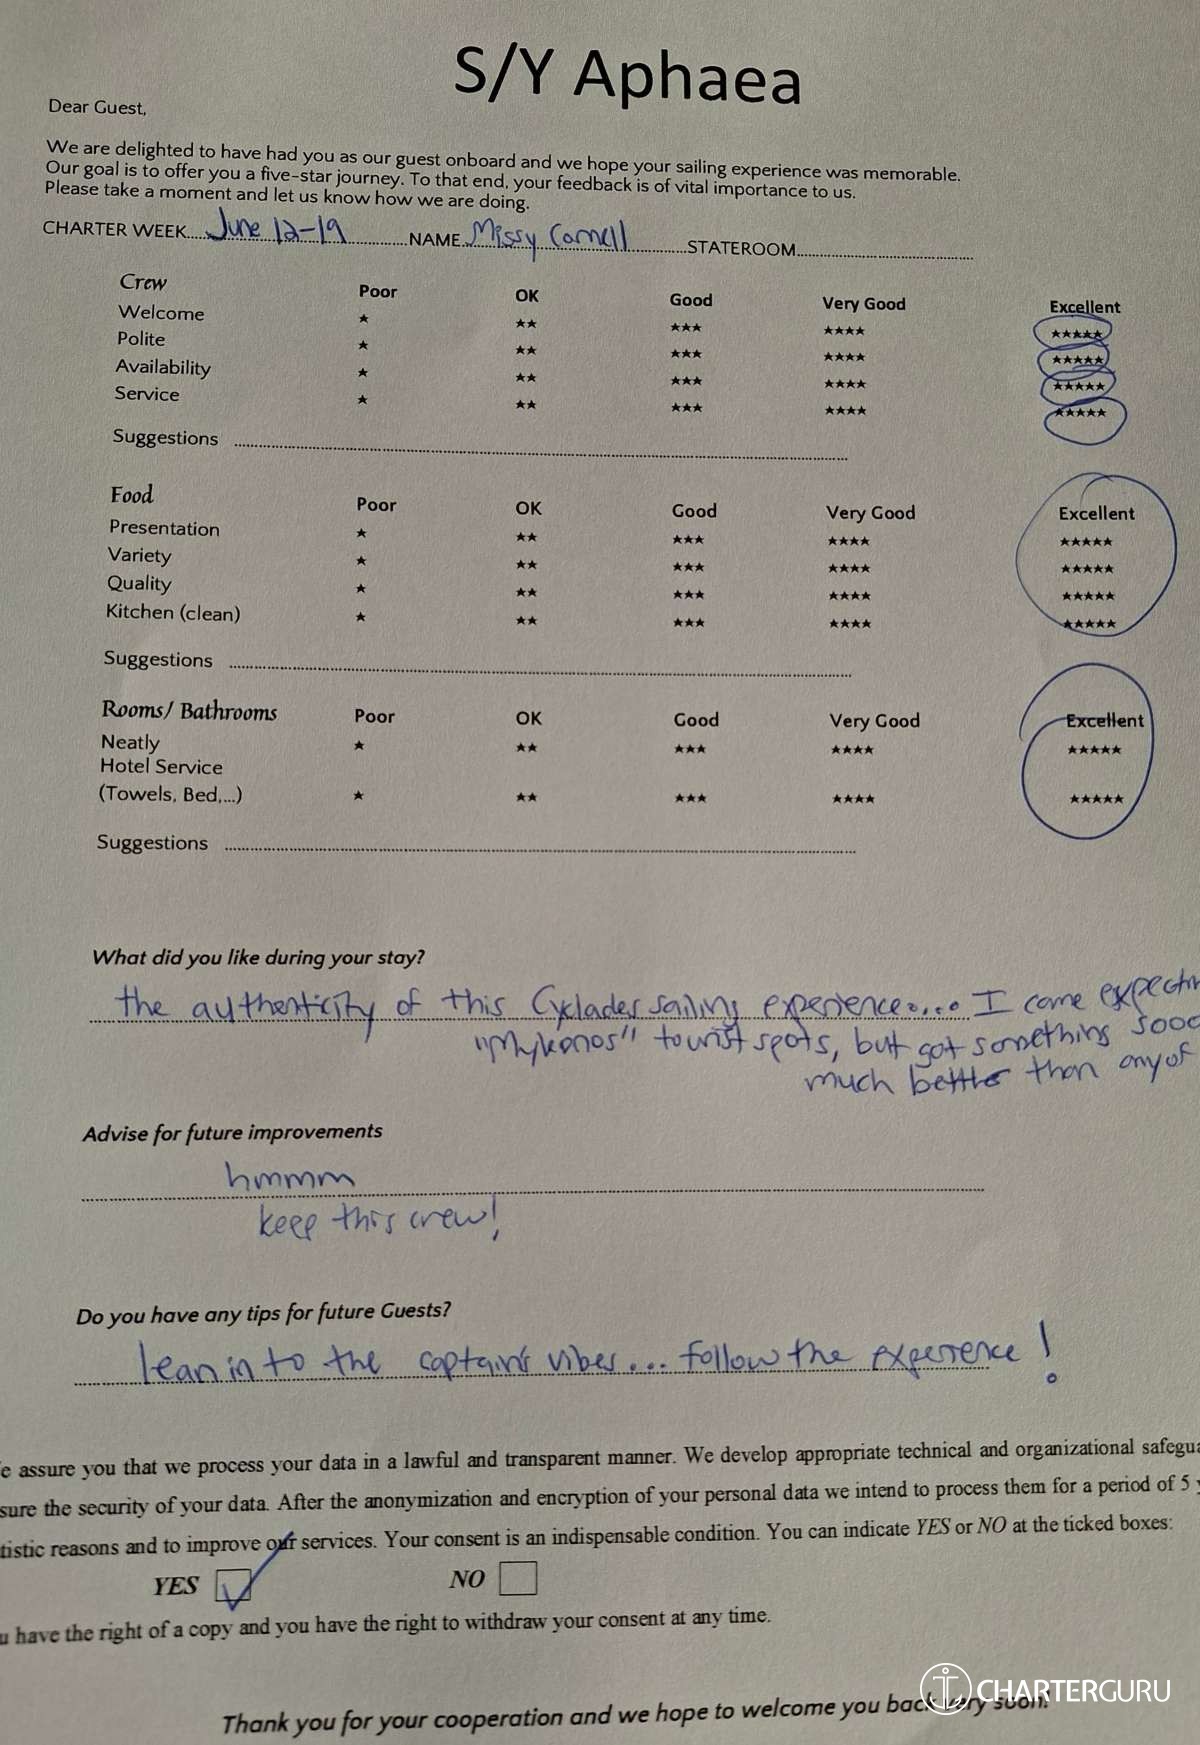 S/Y Aphaea
Dear Guest,
We are delighted to have had you as our guest onboard and we hope your sailing experience was memorable.
Our goal is to offer you a five-star journey. To that end, your feedback is of vital importance to us.
Please take a moment and let us know how we are doing.
CHARTER WEEK June 12-19 NAME Missy Cornell STATEROOM
Crew Poor OK Good Very Good Excellent
Welcome ★ ★★ ★★★ ★★★★ ★★★★★
Polite ★ ★★ ★★★ ★★★★ ★★★★★
Availability ★ ★★ ★★★ ★★★★ ★★★★★
Service ★ ★★ ★★★ ★★★★ ★★★★★
Suggestions
Food Poor OK Good Very Good Excellent
Presentation ★ ★★ ★★★ ★★★★ ★★★★★
Variety ★ ★★ ★★★ ★★★★ ★★★★★
Quality ★ ★★ ★★★ ★★★★ ★★★★★
Kitchen (clean) ★ ★★ ★★★ ★★★★ ★★★★★
Suggestions
Rooms/ Bathrooms Poor OK Good Very Good Excellent
Neatly ★ ★★ ★★★ ★★★★ ★★★★★
Hotel Service
(Towels, Bed,...) ★ ★★ ★★★ ★★★★ ★★★★★
Suggestions
What did you like during your stay?
the authenticity of this Cyclades sailing experience.... I came expectin
"Mykonos" tourist spots, but got something sooo
much better than any of
Advise for future improvements
hmmmm
keep this crew!
Do you have any tips for future Guests?
lean in to the captain's vibes... follow the experience!
e assure you that we process your data in a lawful and transparent manner. We develop appropriate technical and organizational safegua
sure the security of your data. After the anonymization and encryption of your personal data we intend to process them for a period of 5 y
tistic reasons and to improve our services. Your consent is an indispensable condition. You can indicate YES or NO at the ticked boxes:
YES NO
u have the right of a copy and you have the right to withdraw your consent at any time.
Thank you for your cooperation and we hope to welcome you back very soon!
CHARTERGURU